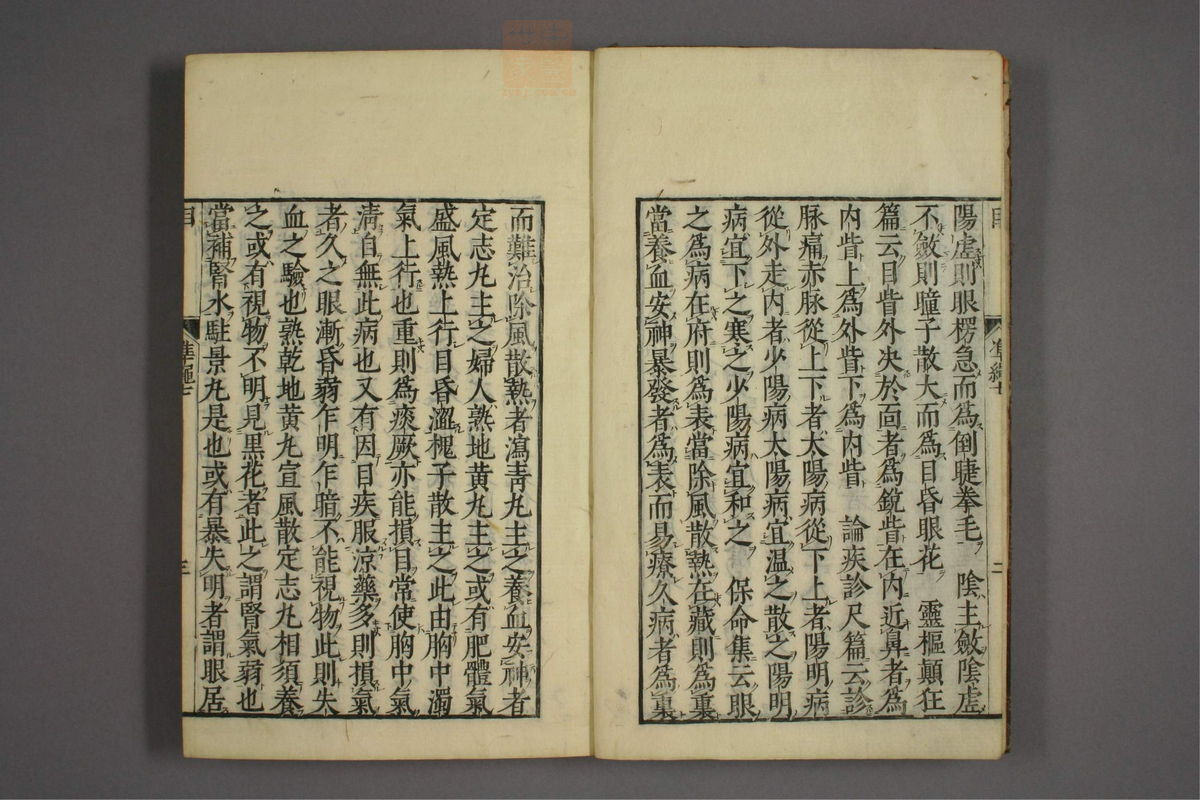 陽虛則眼楞急而爲倒睫拳毛　陰主斂陰虛
不斂則瞳子散大而爲目昏眼花　靈樞顚狂
篇云目眥外决於面者爲銳眥在内近鼻者爲
内眥上爲外眥下爲内眥　論疾診尺篇云診
脉痛赤脉從上下者太陽病從下上者陽明病
從外走内者少陽病太陽病宜温之散之陽明
病宜下之寒之少陽病宜和之　保命集云眼
之爲病在府則爲表當除風散熱在藏則爲裏
當養血安神暴發者爲表而易療久病者爲裏
二
而難治除風散熱者瀉靑丸主之養血安神者
定志丸主之婦人熟地黄丸主之或有肥體氣
盛風熱上行目昏澀槐子散主之此由胸中濁
氣上行也重則爲痰厥亦能損目常使胸中氣
淸自無此病也又有因目疾服凉藥多則損氣
者久之眼漸昏弱乍明乍暗不能視物此則失
血之驗也熟乾地黄丸宣風散定志丸相須養
之或有視物不明見黒花者此之謂腎氣弱也
當補腎水駐景丸是也或有暴失明者謂眼居
目
準繩七
三